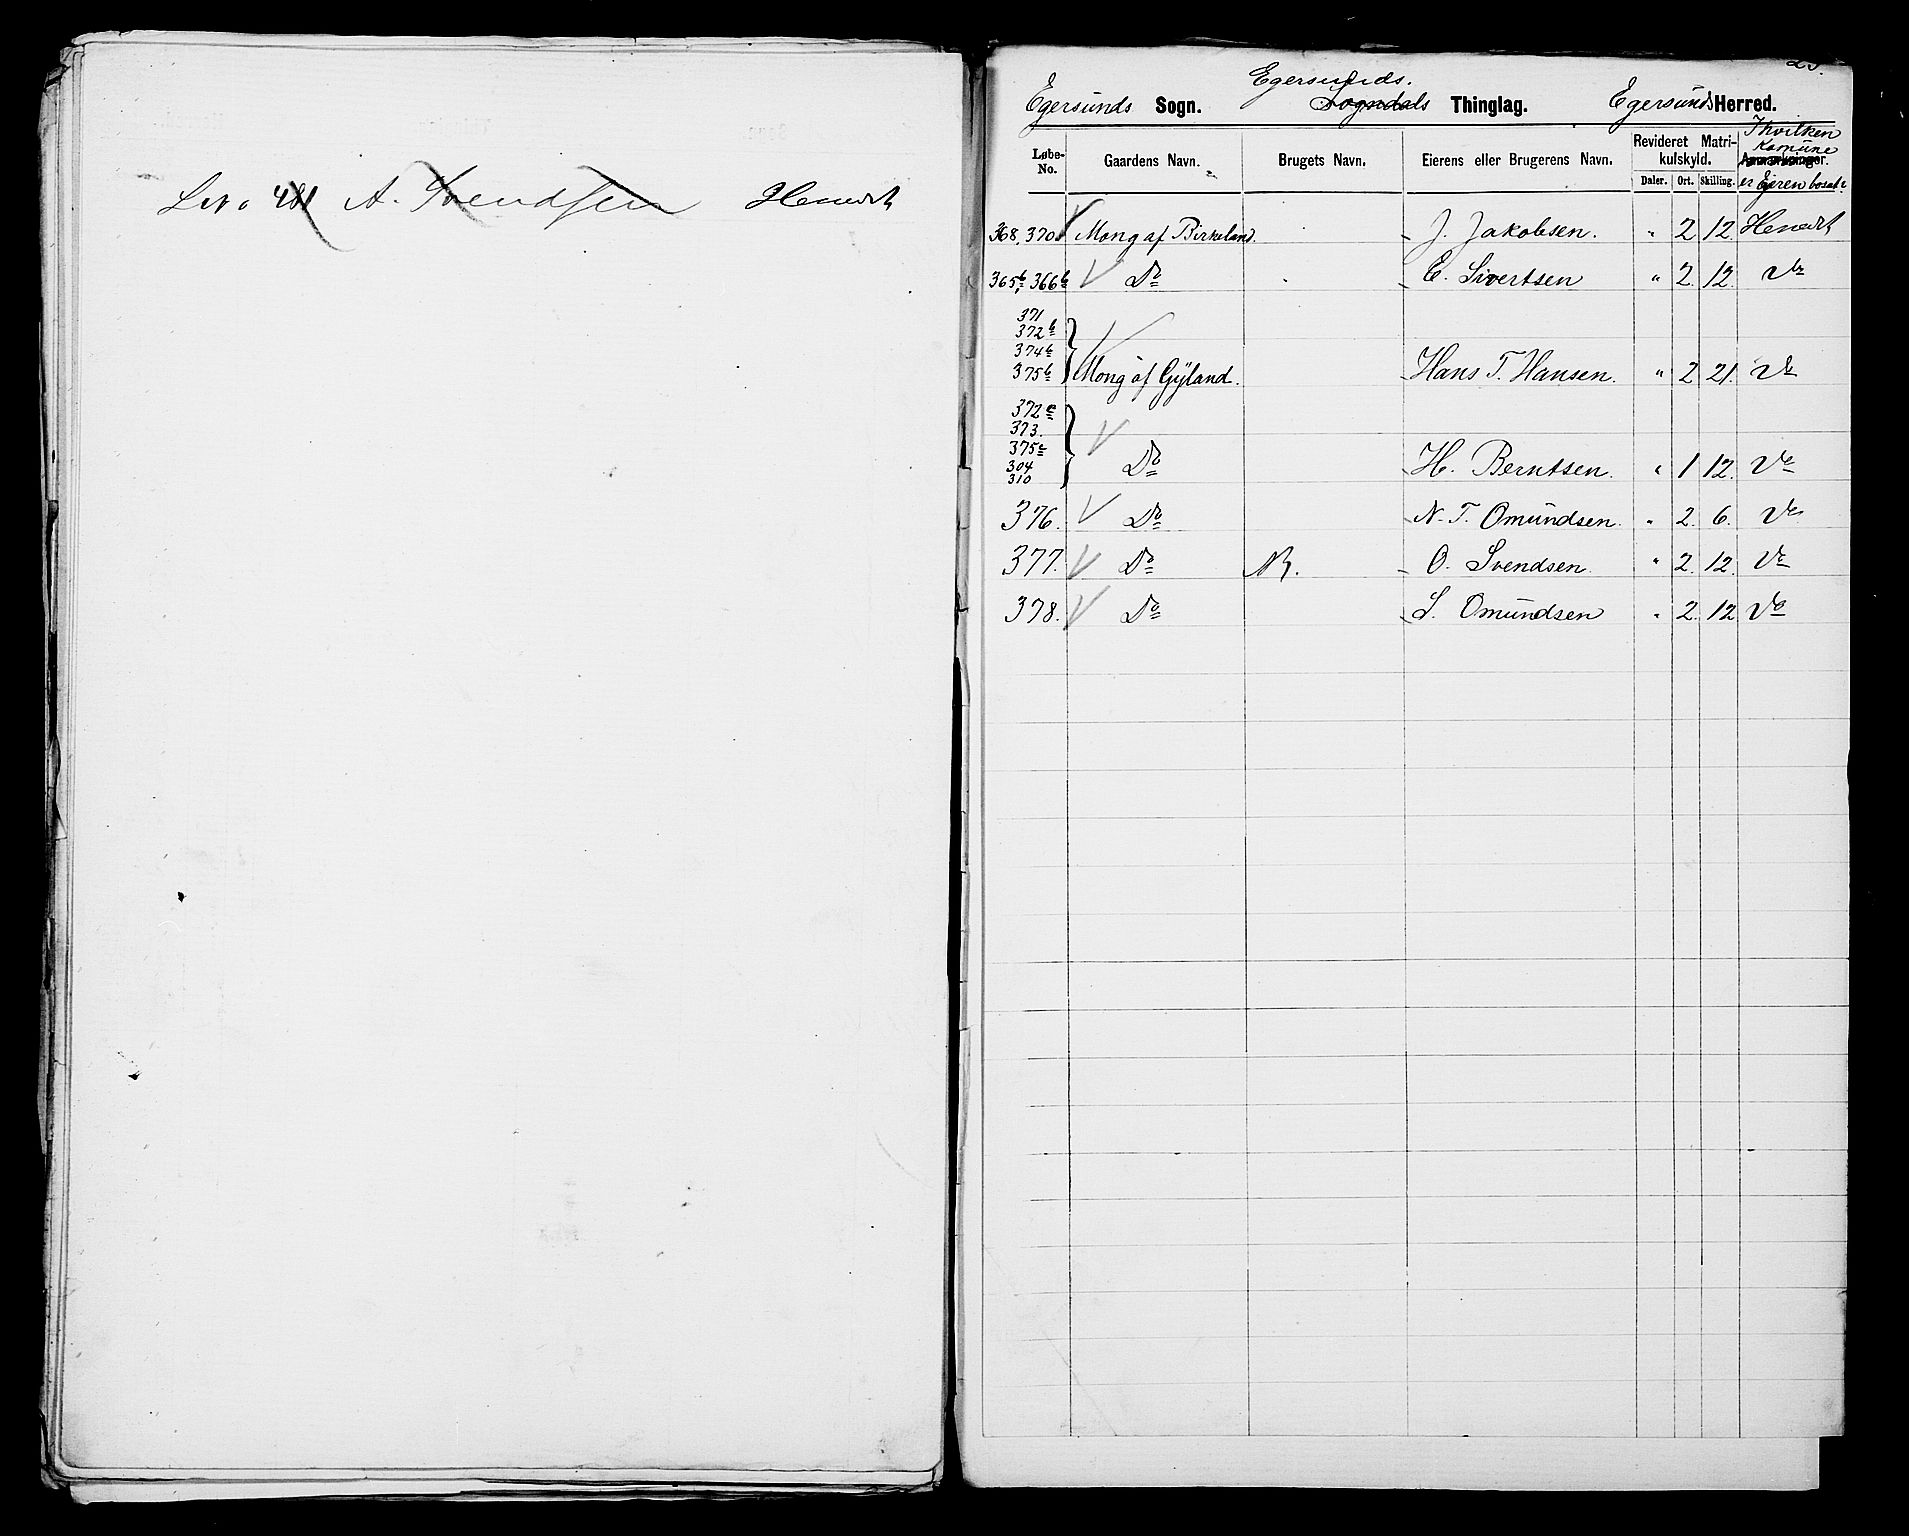 Lno 481 A. Svendsen Heneskt
23.
Egersunds.
Egersunds Sogn. Sogndals Thinglag. Egersunds Herred.
Løbe-No. Gaardens Navn. Brugets Navn. Eierens eller Brugerens Navn. Revideret Matrikulskyld. Anmærkninger.
Daler. Ort. Skilling.
I hvilken
Komune
er Ejeren bosat.
368, 370 Mong af Birkeland. J. Jakobsen. " 2 12.
365b, 366b Do E. Sivertsen " 2. 12. Do
371
372b
374b
375b Mong af Gyland. Hans T. Hansen. " 2 21. Do
372c
373.
375c
304
310 Do H. Berntsen. " 1 12. Do
376. Do N. T. Omundsen. " 2. 6. Do
377. Do NB. O. Svendsen. " 2. 12. Do
378. Do S. Omundsen " 2. 12 Do